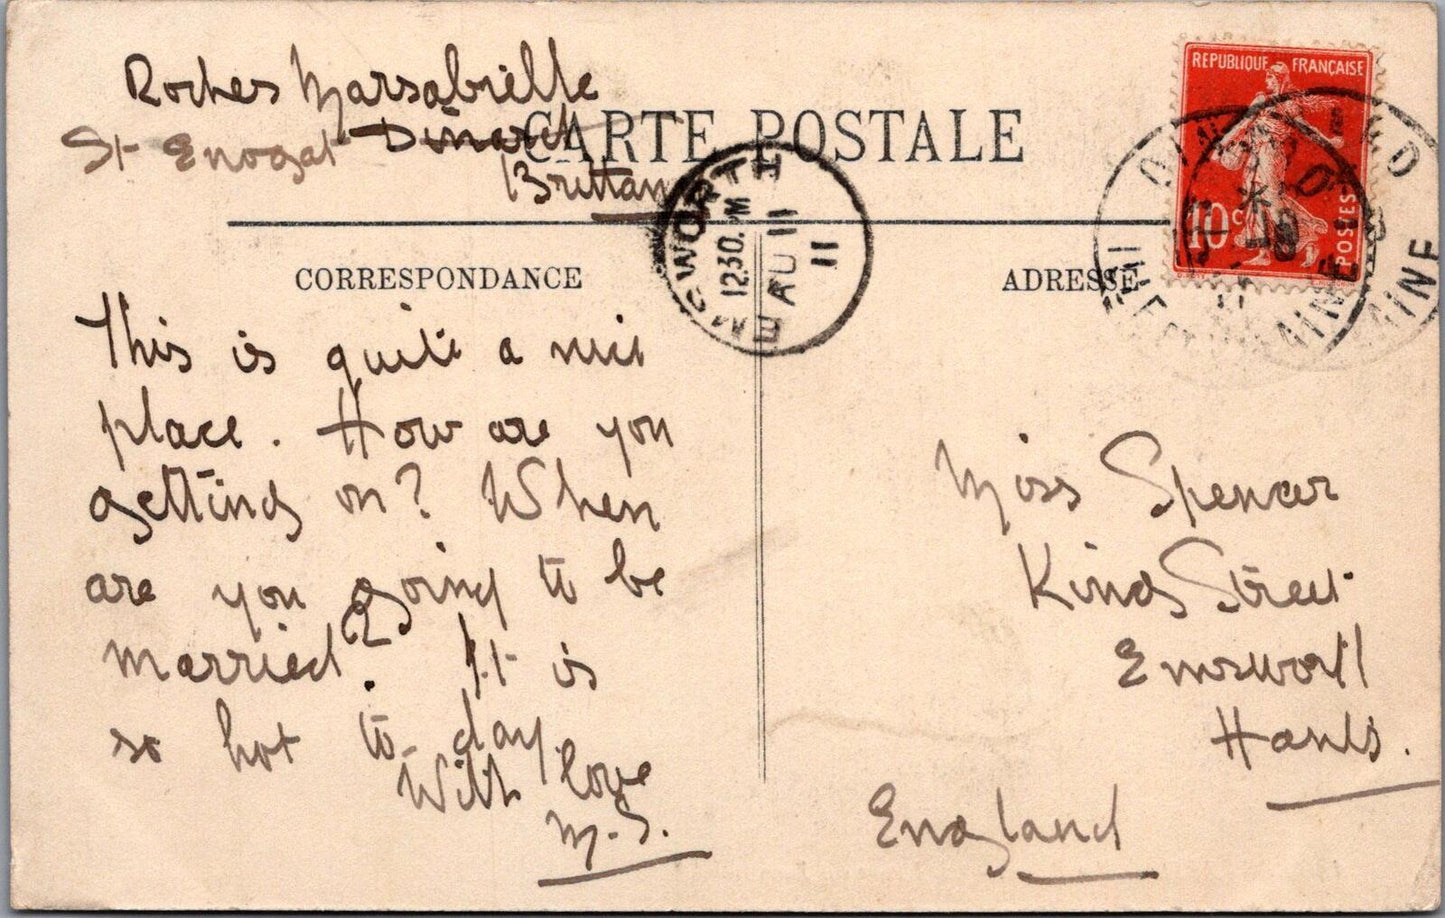 Roches Marsabielle
St Enogat Dinard
Brittany
CARTE POSTALE
CORRESPONDANCE
ADRESSE
REPUBLIQUE FRANÇAISE
10c
POSTES
DINARD
ILLE ET VILAINE
EMSWORTH
12.30.PM
AU 11
11
This is quite a nice
place. How are you
getting on? When
are you going to be
married? It is
so hot to-day.
With love
M.S.
Miss Spencer
King Street
Emsworth
Hants.
England